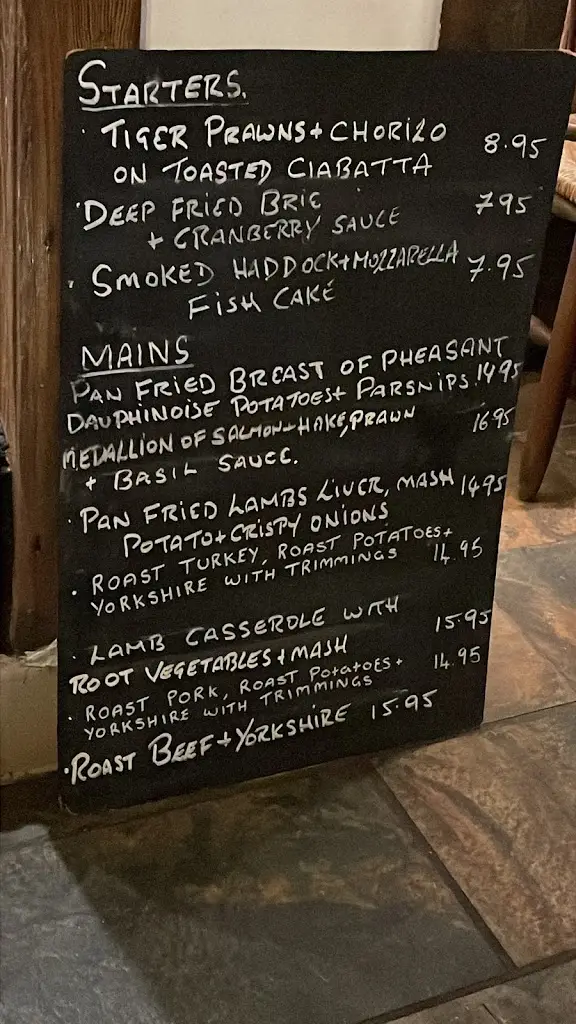 STARTERS.
· TIGER PRAWNS + CHORIZO 8.95
ON TOASTED CIABATTA
· DEEP FRIED BRIE 7.95
+ CRANBERRY SAUCE
· SMOKED HADDOCK + MOZZARELLA 7.95
FISH CAKE
MAINS
PAN FRIED BREAST OF PHEASANT
DAUPHINOISE POTATOES + PARSNIPS. 14.95
MEDALLION OF SALMON + HAKE, PRAWN 16.95
+ BASIL SAUCE.
· PAN FRIED LAMBS LIVER, MASH 14.95
POTATO + CRISPY ONIONS
· ROAST TURKEY, ROAST POTATOES + 14.95
YORKSHIRE WITH TRIMMINGS
· LAMB CASSEROLE WITH 15.95
ROOT VEGETABLES + MASH
· ROAST PORK, ROAST POTATOES + 14.95
YORKSHIRE WITH TRIMMINGS
· ROAST BEEF + YORKSHIRE 15.95